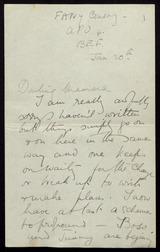 FANY Convoy
APO
B.E.F.
Jan 20th
Darling Mamma
I am really awfully
sorry I haven't written
but things simply go on
& on here in the same
way and one keeps
on waiting on the chance
of break up to write
& make plans. I now
have at last a scheme
to propound - Boss
and Jimmy are